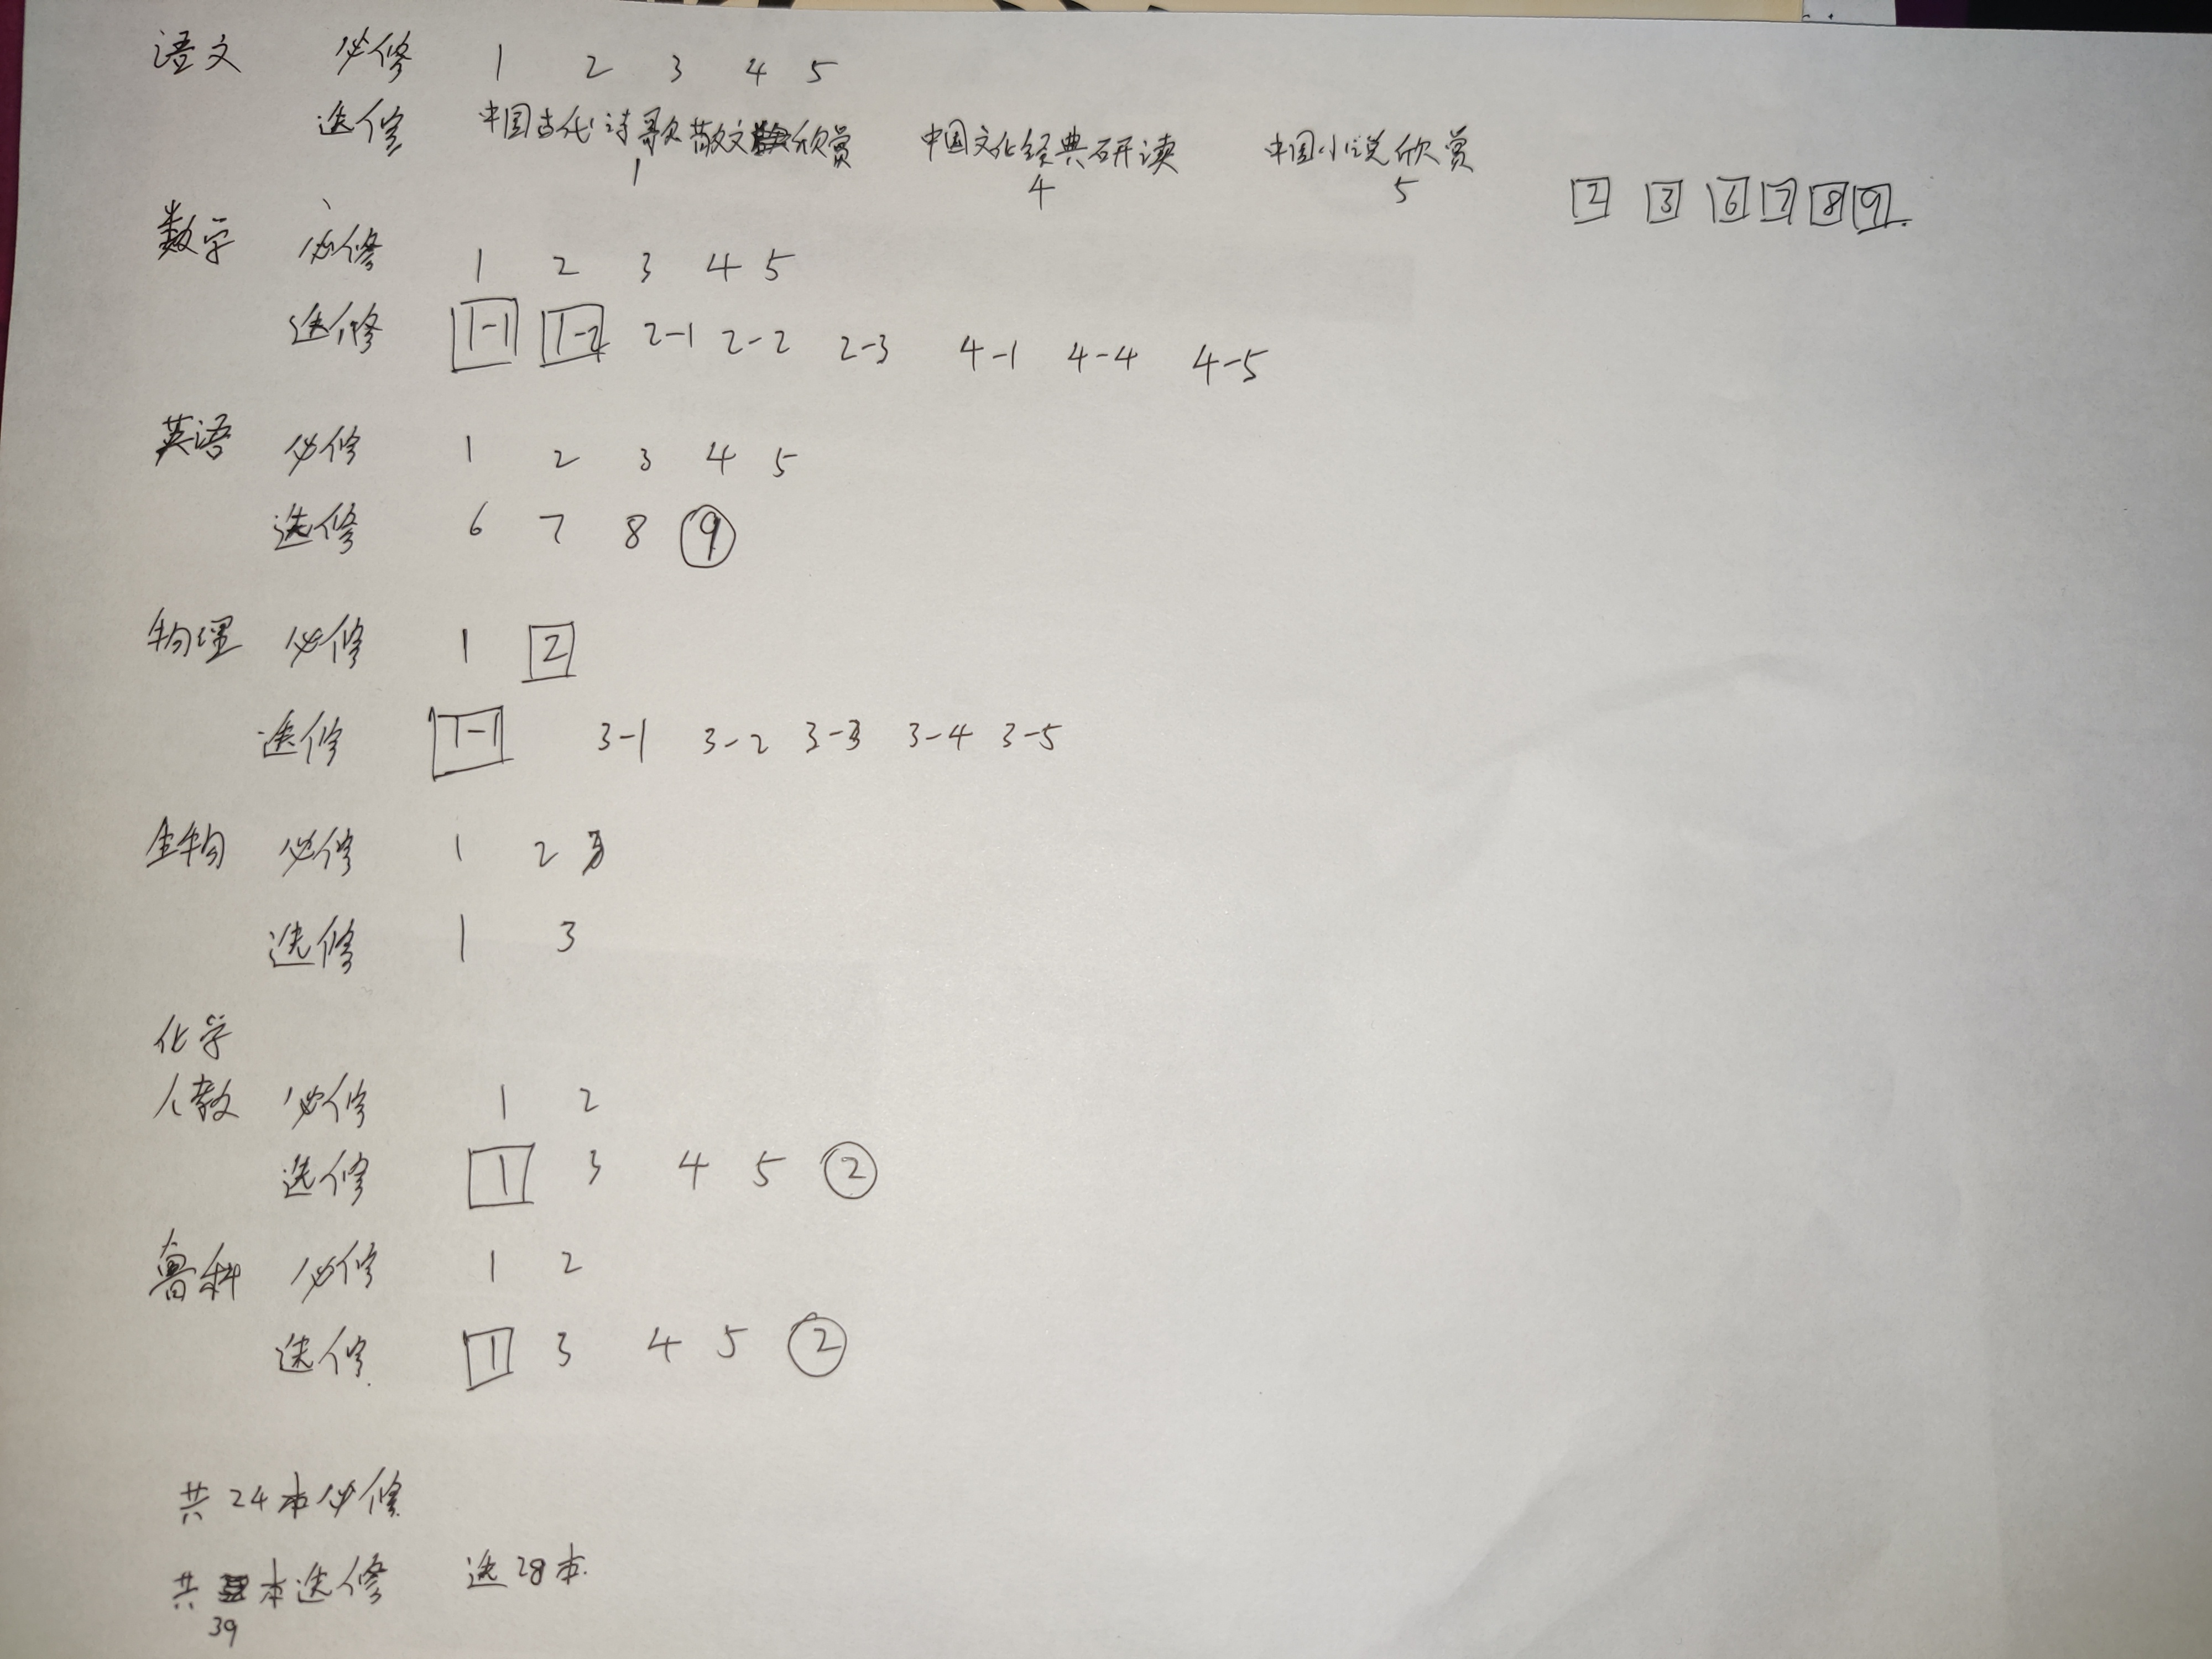 语文 必修 1 2 3 4 5
选修 中国古代诗歌散文欣赏 中国文化经典研读 中国小说欣赏
1 4 5 2 3 6 7 8 9
数学 必修 1 2 3 4 5
选修 1-1 1-2 2-1 2-2 2-3 4-1 4-4 4-5
英语 必修 1 2 3 4 5
选修 6 7 8 9
物理 必修 1 2
选修 1-1 3-1 3-2 3-3 3-4 3-5
生物 必修 1 2 3
选修 1 3
化学
人教 必修 1 2
选修 1 3 4 5 2
鲁科 必修 1 2
选修 1 3 4 5 2
共24本必修
共本选修 选28本.
39